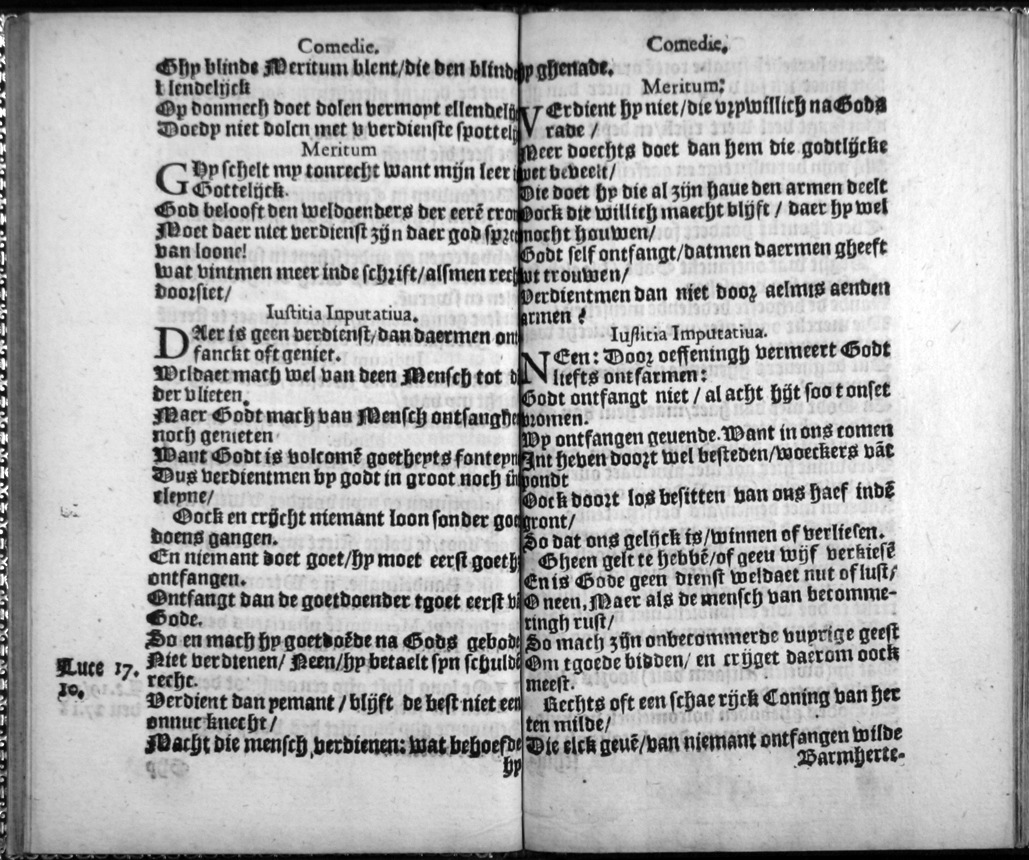 Comedie.
Ghy blinde Meritum blent/die den blind
Ellendelijck
Op donrech doet dolen vermoyt ellendelij
Doedy niet dolen met v verdienste spottelij
Meritum
GHy schelt my tonrecht want mijn leer i
Gottelijck.
God belooft den weldoenders der eerē cron
Moet daer niet verdienst zijn daer god spre
van loone!
wat vintmen meer inde schrift/alsmen rech
doorsiet/
Iustitia Inputatiua.
DAer is geen verdienst/dan daermen ont
fanckt oft geniet.
Weldaet mach wel van deen Mensch tot d
der vlieten.
Maer Godt mach van Mensch ontsanghe
noch genieten
Want Godt is volcomē goetheyts fonteyn
Dus verdientmen by godt in groot noch in
cleyne/
Oock en crijcht niemant loon sonder goe
doens gangen.
En niemant doet goet/hy moet eerst goeth
ontfangen.
Ontfangt dan de goetdoender tgoet eerst va
Gode.
So en mach hy goetdoēde na Gods gebode
Luce 17.
10.
Niet verdienen/ Neen/hy betaelt syn schuldē
recht.
Verdient dan yemant/blijft de best niet een
onnut knecht/
Macht die mensch verdienen: wat behoefde
hy
Comedie.
hy ghenade.
Meritum:
VErdient hy niet/die vrywillich na Gods
rade/
Meer doechts doet dan hem die godtlijcke
wet beveelt/
Die doet hy die al zijn haue den armen deelt
Oock die willich maecht blijft/ daer hy wel
mocht houwen/
Godt self ontfangt/datmen daermen gheeft
wt trouwen/
Verdientmen dan niet door aelmis aenden
armen?
Iustitia Imputatiua.
NEen: Door oeffeningh vermeert Godt
liefts ontfarmen:
Godt ontfangt niet/ al acht hijt soo t onset
vromen.
Wy ontfangen geuende. Want in ons comen
Int heven doort wel besteden/woeckers vāt
pondt
Oock doort los besitten van ons haef indē
gront/
So dat ons gelijck is/winnen of verliesen.
Gheen gelt te hebbē/of geen wijf verkiesē
En is Gode geen dienst weldaet nut of lust/
O neen, Maer als de mensch van becomme-
ringh rust/
So mach zijn onbecommerde vuyrige geest
Om tgoede bidden/ en crijget daerom oock
meest.
Rechts oft een schae rijck Coning van her
ten milde/
Die elck geuē/van niemant ontfangen wilde
Barmherte-